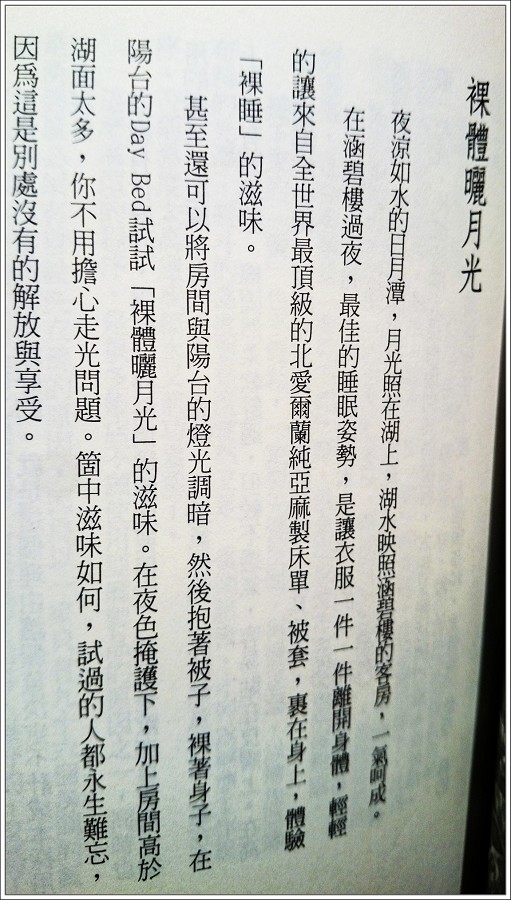 裸體曬月光
夜涼如水的日月潭，月光照在湖上，湖水映照涵碧樓的客房，一氣呵成。
在涵碧樓過夜，最佳的睡眠姿勢，是讓衣服一件一件離開身體，輕輕
的讓來自全世界最頂級的北愛爾蘭純亞麻製床單、被套，裹在身上，體驗
「裸睡」的滋味。
甚至還可以將房間與陽台的燈光調暗，然後抱著被子，裸著身子，在
陽台的Day Bed試試「裸體曬月光」的滋味。在夜色掩護下，加上房間高於
湖面太多，你不用擔心走光問題。箇中滋味如何，試過的人都永生難忘，
因為這是別處沒有的解放與享受。